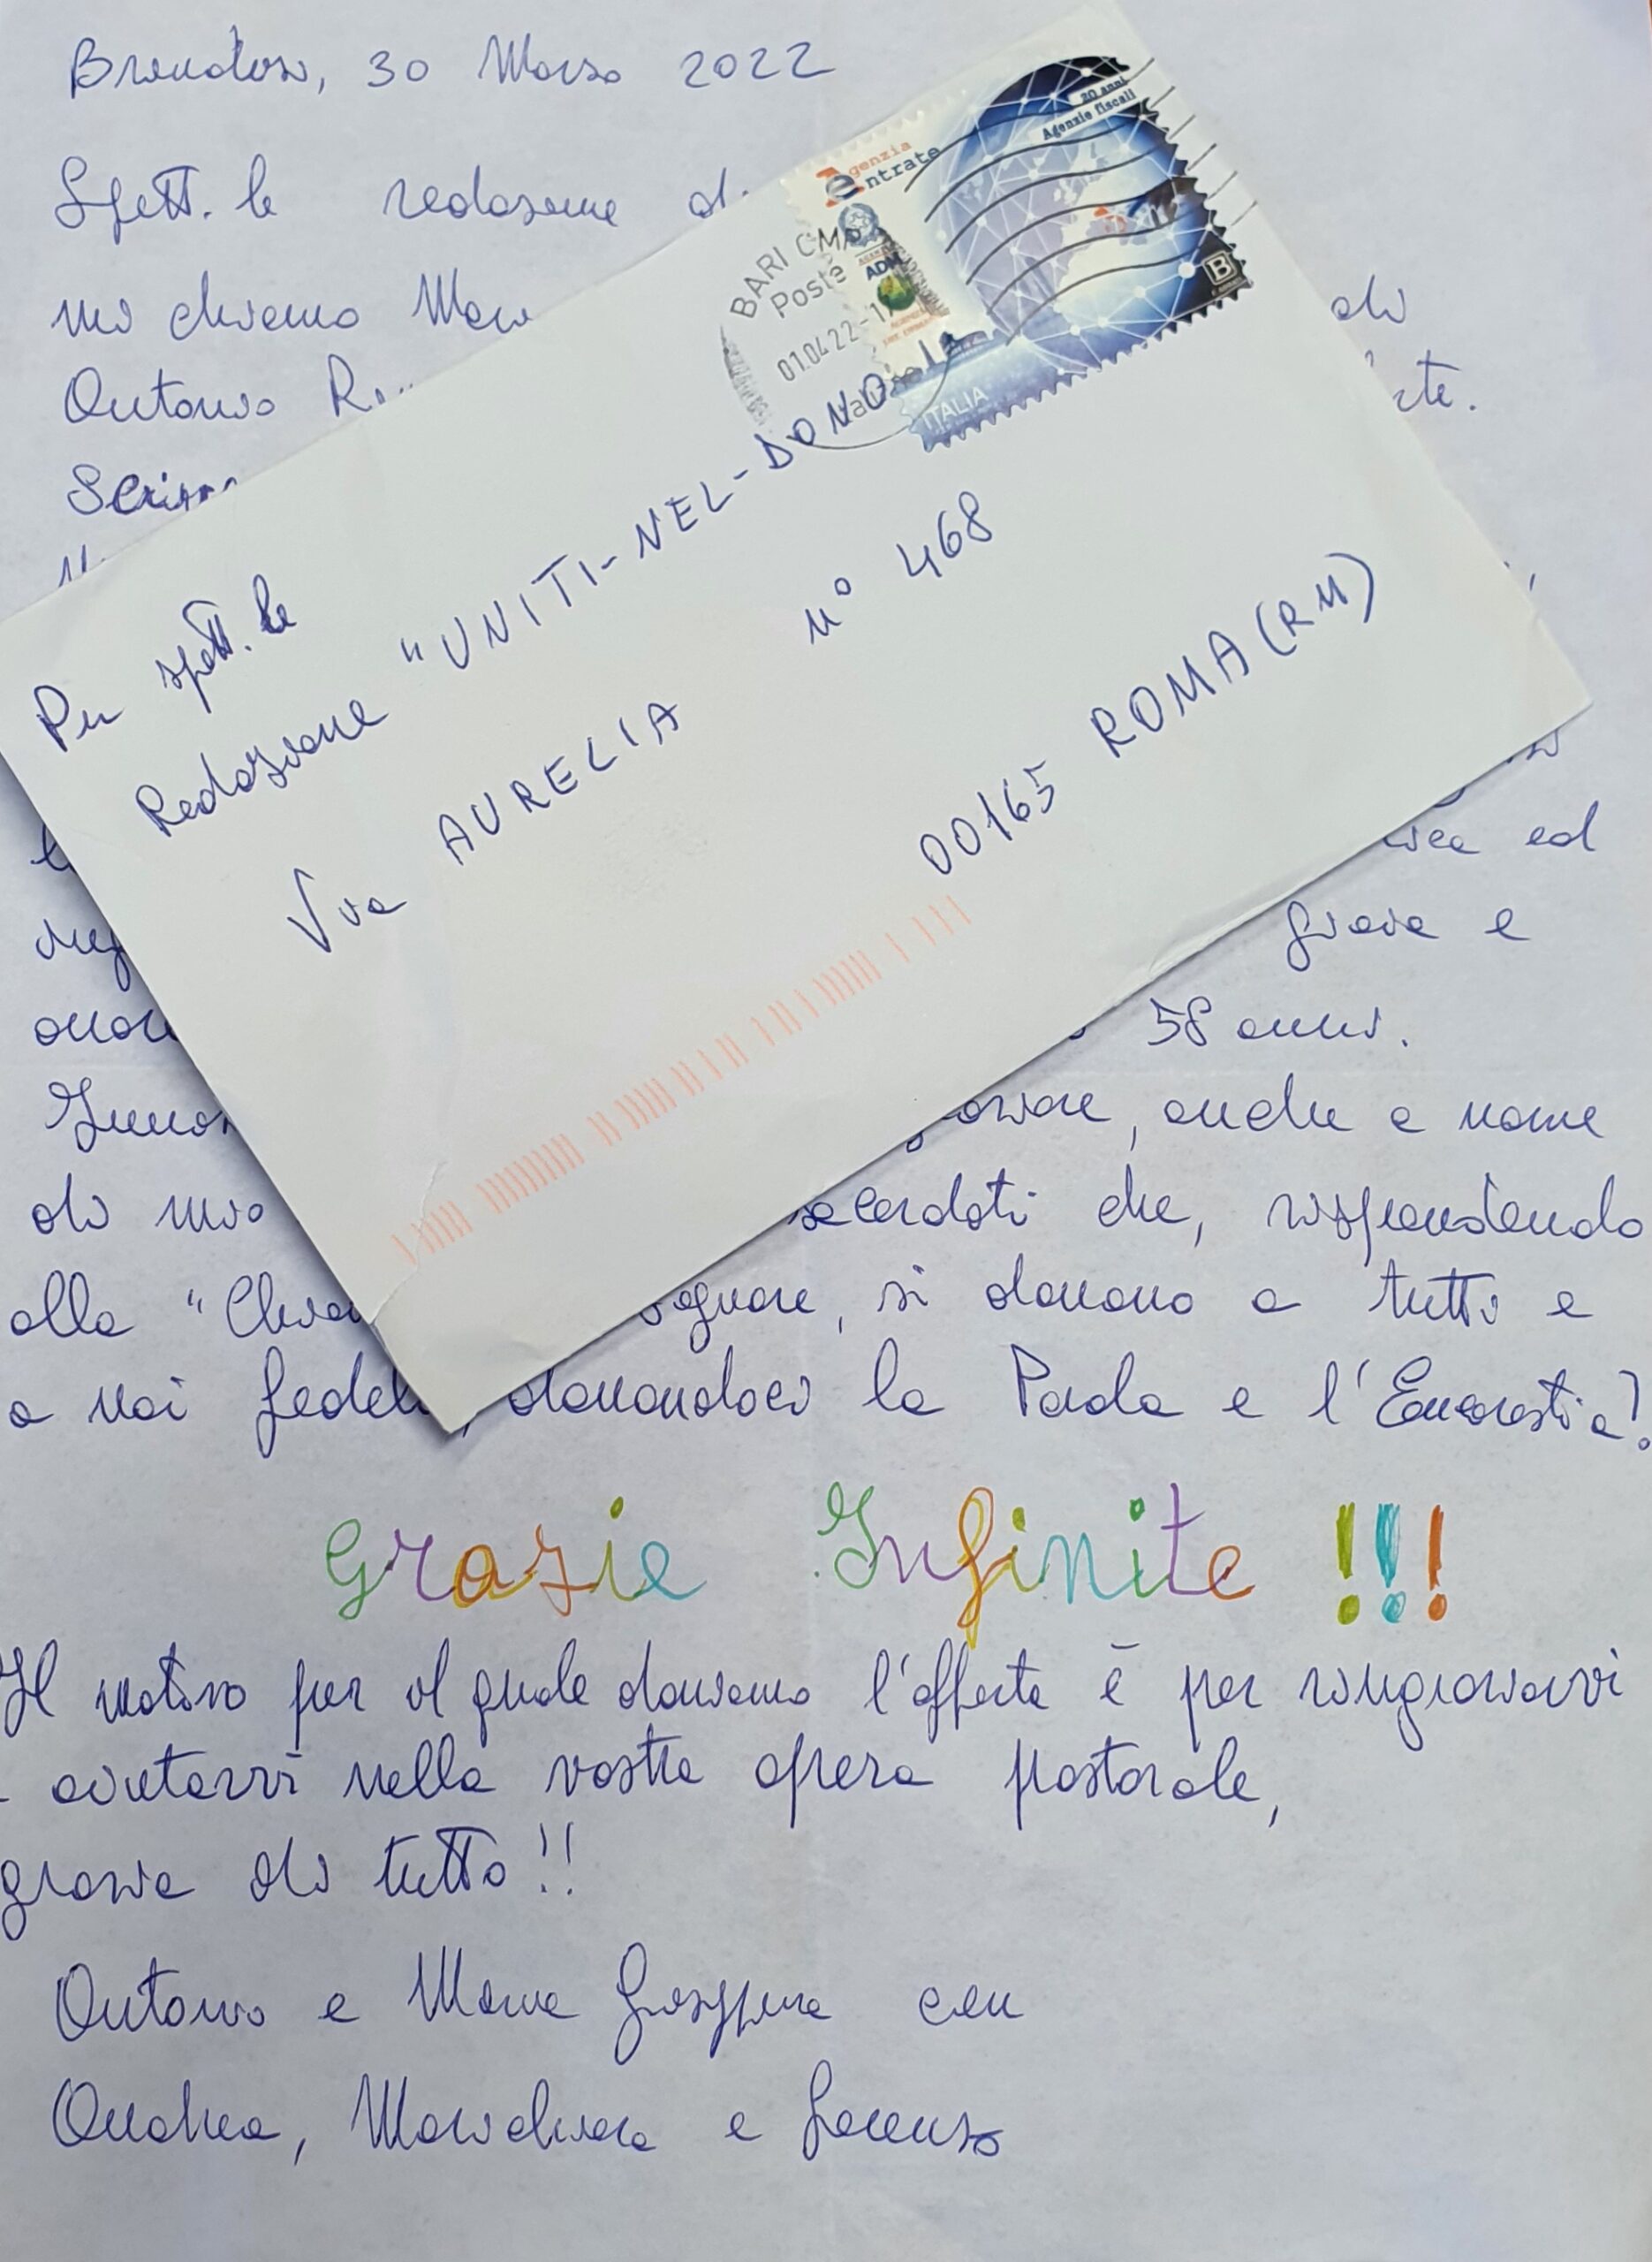 Brindisi, 30 Marzo 2022
Spett.le redazione di
mi chiamo Mari
di
Antonio
rte.
ed
grave e
58 anni.
, anche a nome
di mio
sacerdoti che, rispondendo
alla "Chiam
ignore, si donano a tutti e
a noi fedeli, donandoci la Parola e l'Eucarestia!
Grazie Infinite !!!
Il motivo per il quale doniamo l'offerta è per ringraziarvi
aiutarvi nella vostra opera pastorale,
grazie di tutto!!
Antonio e Maria Giuseppina con
Andrea, Mariachiara e Lorenzo
Agenzia
entrate
20 anni
Agenzie fiscali
ADM
B
ITALIA
BARI CMP
Poste
01.04.22-1
Per spett.le
Redazione "UNITI-NEL-DONO
Via AURELIA n° 468
00165 ROMA (RM)